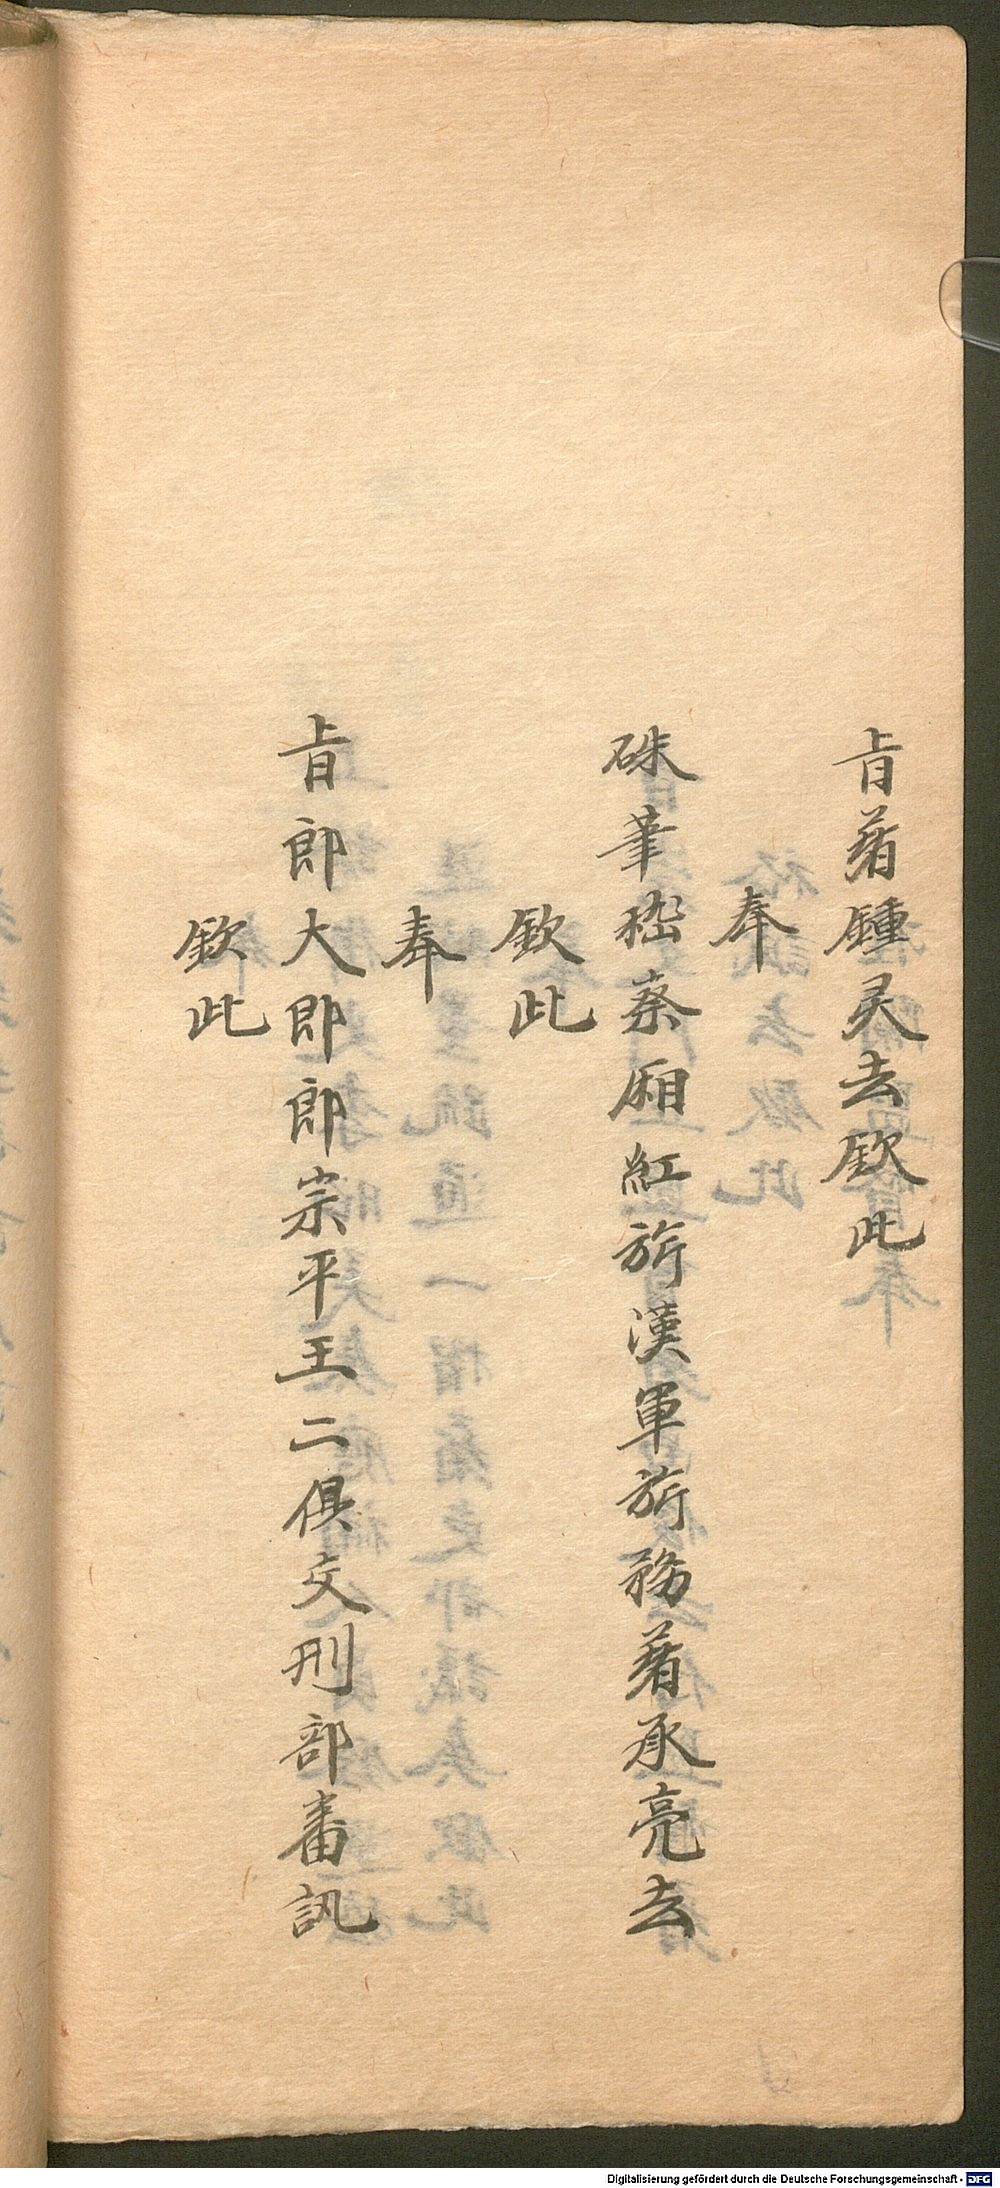 旨着鍾灵去欽此
奉
硃筆稽察廂紅旂漢軍旂務着承亮去
欽此
奉
旨郎大即郎宗平王二俱交刑部審訊
欽此
Digitalisierung gefördert durch die Deutsche Forschungsgemeinschaft - DFG